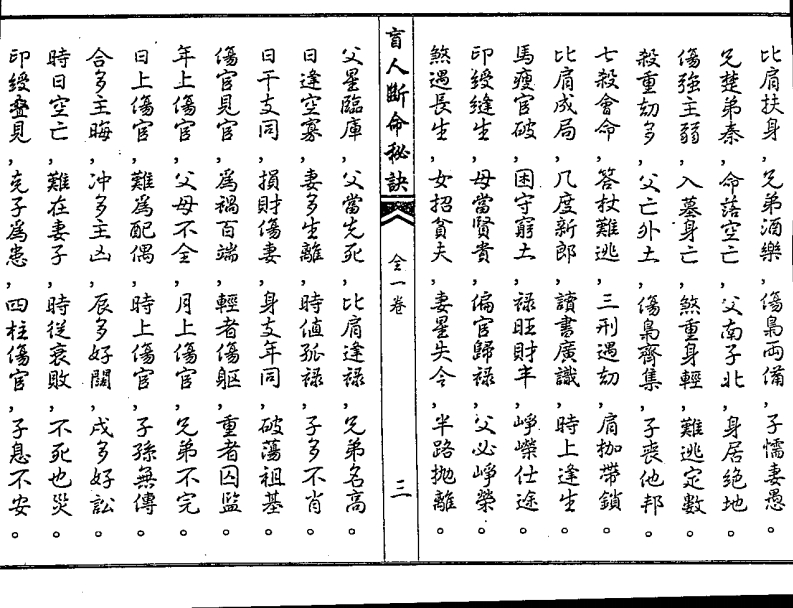 比肩扶身,兄弟酒樂,傷梟両備,子懦妻愚。
兄楚弟秦,命落空亡,父南子北,身居絕地。
傷強主弱,入墓身亡,煞重身輕,難逃定數。
殺重劫多,父亡外土,傷梟齊集,子喪他邦。
七殺會命,答杖難逃,三刑遇劫,肩枷帶鎖。
比肩成局,几度新郎,讀書廣識,時上逢生。
馬瘦官破,困守窮土,祿旺財丰,崢嶸仕途。
印綬縫生,母當賢貴,偏官歸祿,父必崢榮。
煞遇長生,女招貧夫,妻星失令,半路抛離。
盲人斷命秘訣
仝一卷
三
父星臨庫,父當先死,比肩逢祿,兄弟名高。
日逢空寡,妻多生離,時值孤祿,子多不肖。
日干支同,損財傷妻,身支年同,破蕩祖基。
傷官見官,為禍百端,輕者傷軀,重者囚监。
年上傷官,父母不全,月上傷官,兄弟不完。
日上傷官,難為配偶,時上傷官,子孫無傳。
合多主晦,冲多主凶,辰多好闘,戌多好訟。
時日空亡,難在妻子,時從衰敗,不死也災。
印綬叠見,克子為患,四柱傷官,子息不安。